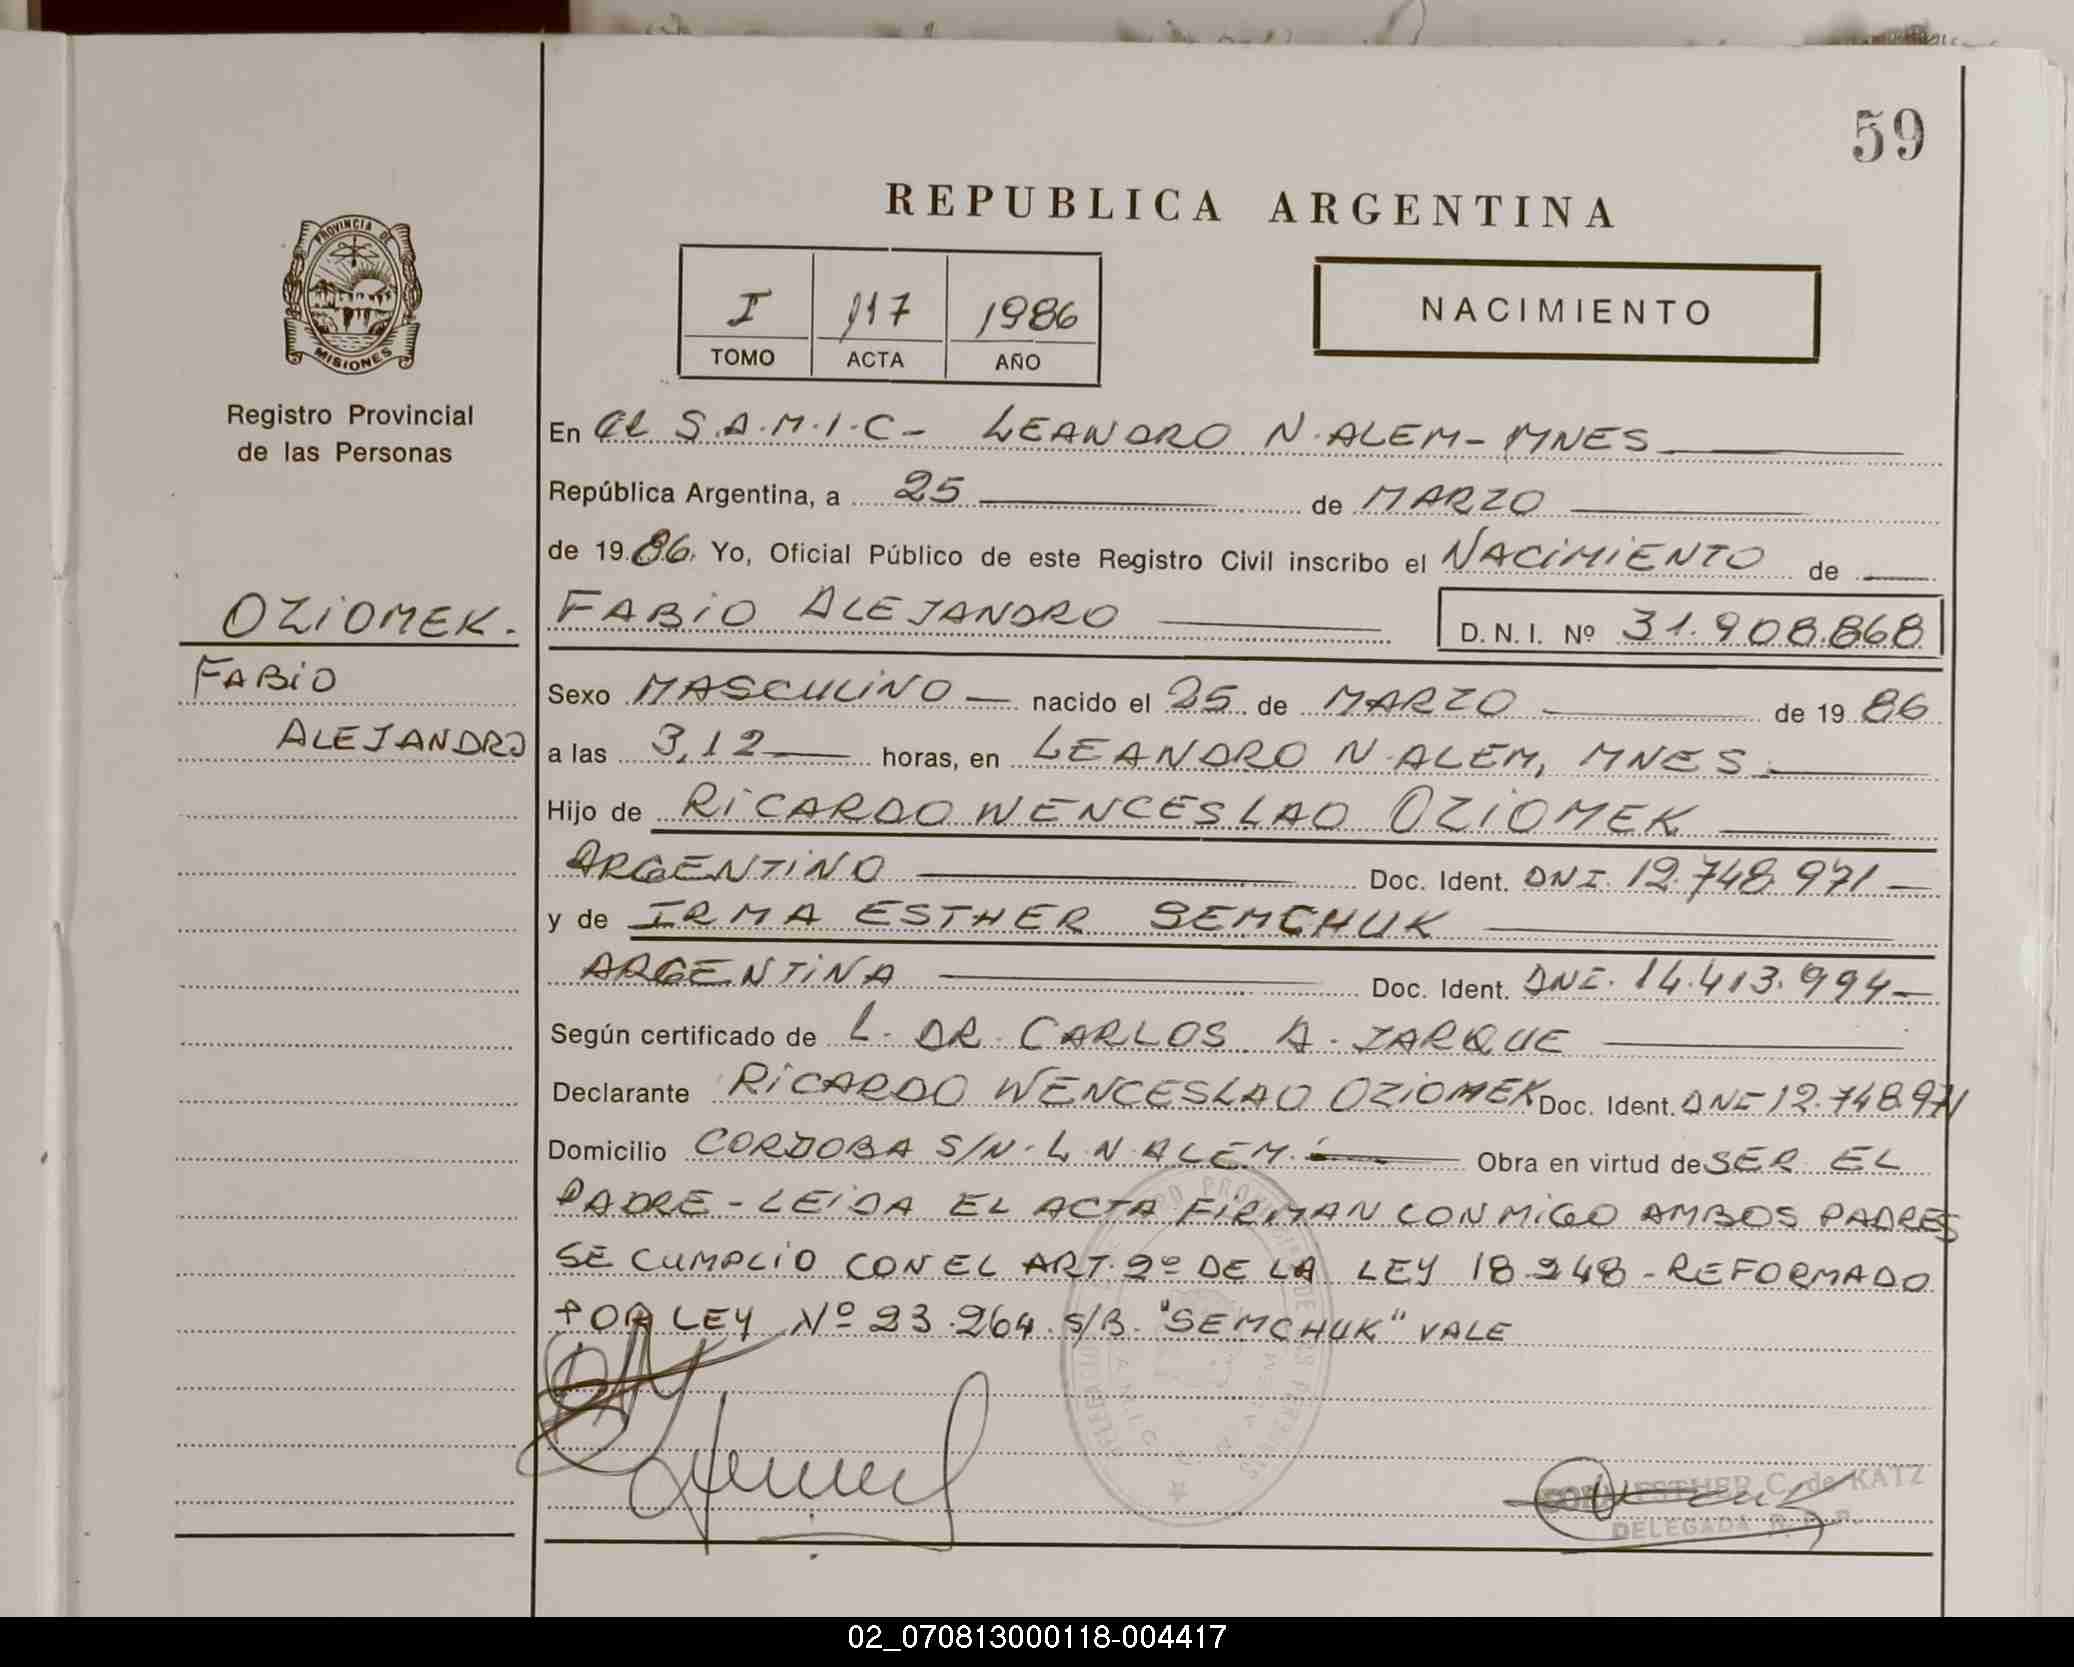 59
REPUBLICA ARGENTINA
PROVINCIA DE
MISIONES
Registro Provincial
de las Personas
I 117 1986
TOMO ACTA AÑO
NACIMIENTO
En el S.A.M.I.C - LEANDRO N. ALEM - MNES
República Argentina, a 25 de MARZO
de 1986. Yo, Oficial Público de este Registro Civil inscribo el NACIMIENTO de
OZIOMEK.
FABIO
ALEJANDRO
FABIO ALEJANDRO D. N. I. Nº 31.908.868
Sexo MASCULINO — nacido el 25 de MARZO de 19 86
a las 3,12 horas, en LEANDRO N. ALEM, MNES.
Hijo de RICARDO WENCESLAO OZIOMEK
ARGENTINO Doc. Ident. DNI. 12.748.971 —
y de IRMA ESTHER SEMCHUK
ARGENTINA Doc. Ident. DNI. 14.413.994 —
Según certificado de L. DR. CARLOS A. JARQUE
Declarante RICARDO WENCESLAO OZIOMEK Doc. Ident. DNI 12.748.971
Domicilio CORDOBA S/N. L. N. ALEM. Obra en virtud de SER EL
PADRE - LEIDA EL ACTA FIRMAN CONMIGO AMBOS PADRES
SE CUMPLIO CON EL ART. 2º DE LA LEY 18.248 - REFORMADO
POR LEY Nº 23.264. S/B. "SEMCHUK" VALE
ESTHER C. de KATZ
DELEGADA R. P. P.
02_070813000118-004417